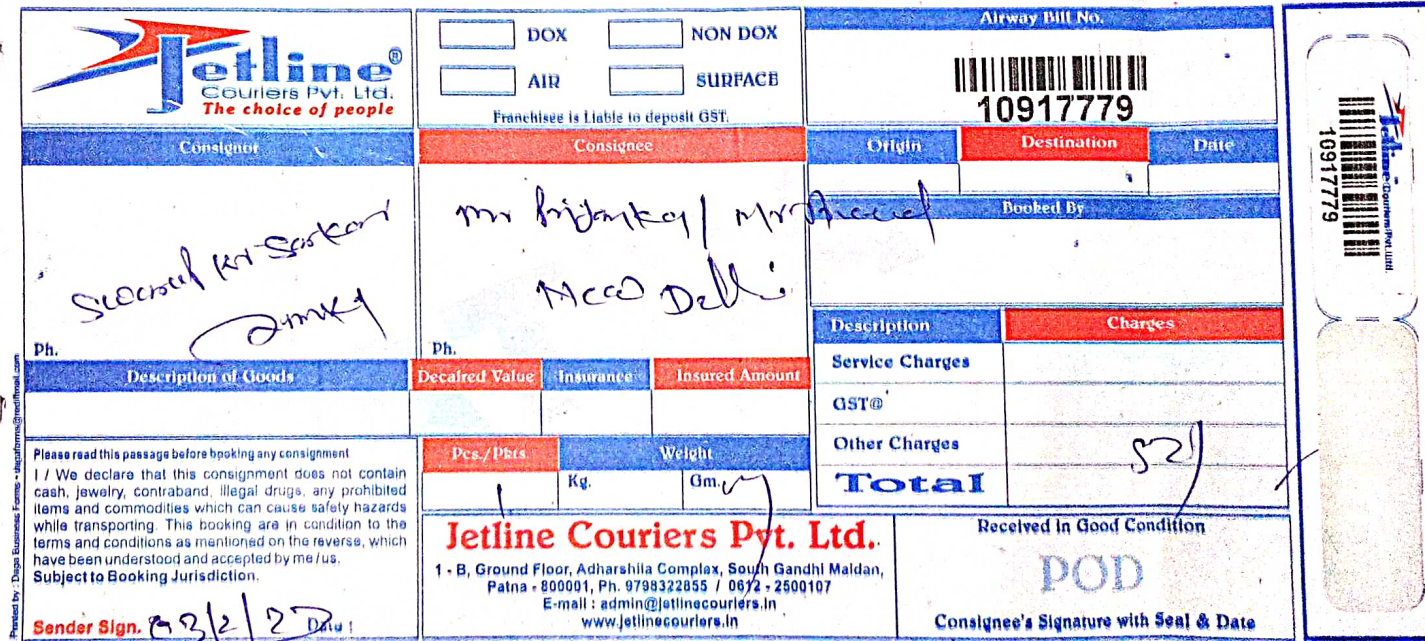 Jetline®
Couriers Pvt. Ltd.
The choice of people
DOX
NON DOX
AIR
SURFACE
Franchisee is Liable to deposit GST.
Airway Bill No.
10917779
Consignor
Consignee
Origin
Destination
Date
Mr Priyanka / Mr
Delhi
Booked By
Ph.
Ph.
Description of Goods
Decalred Value
Insurance
Insured Amount
Description
Charges
Service Charges
GST@
Other Charges
Total
Pcs./Pkts.
Weight
1
Kg.
Gm.
Please read this passage before booking any consignment
I / We declare that this consignment does not contain
cash, jewelry, contraband, illegal drugs, any prohibited
items and commodities which can cause safety hazards
while transporting. This booking are in condition to the
terms and conditions as mentioned on the reverse, which
have been understood and accepted by me/us.
Subject to Booking Jurisdiction.
Sender Sign.
Date :
Jetline Couriers Pvt. Ltd.
1 - B, Ground Floor, Adharshila Complex, South Gandhi Maidan,
Patna - 800001, Ph. 9798322855 / 0612 - 2500107
E-mail : admin@jetlinecouriers.in
www.jetlinecouriers.in
Received in Good Condition
POD
Consignee's Signature with Seal & Date
Jetline Couriers Pvt. Ltd.
10917779
Printed by : Daga Business Forms